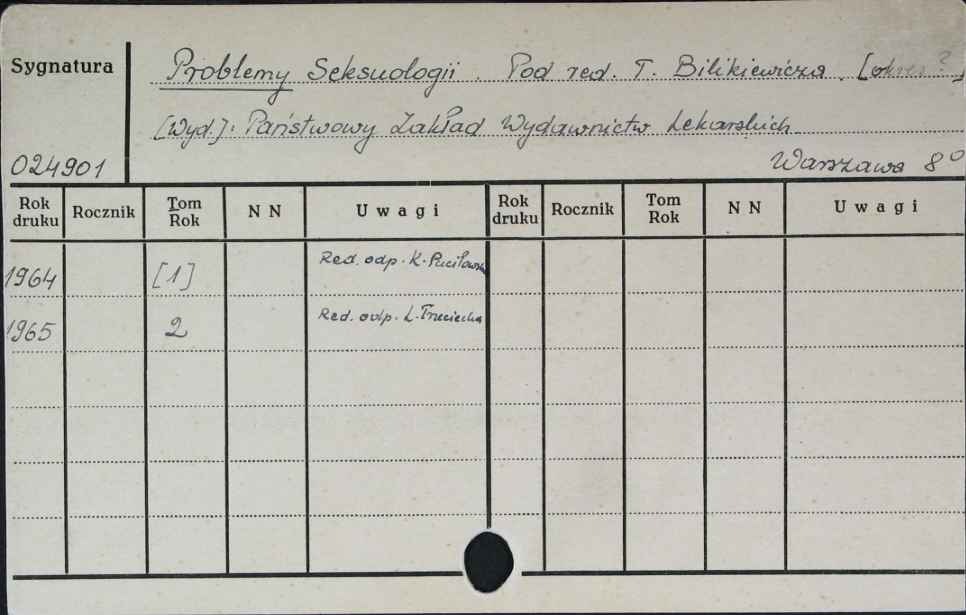 Sygnatura
Problemy Seksuologii. Pod red. T. Bilikiewicza. [okres?]
[Wyd.]: Państwowy Zakład Wydawnictw Lekarskich
024901
Warszawa 8°
Rok druku Rocznik Tom Rok N N Uwagi Rok druku Rocznik Tom Rok N N Uwagi
1964 [1] Red. odp. K.
1965 2 Red. odp. L. Trzeciecka